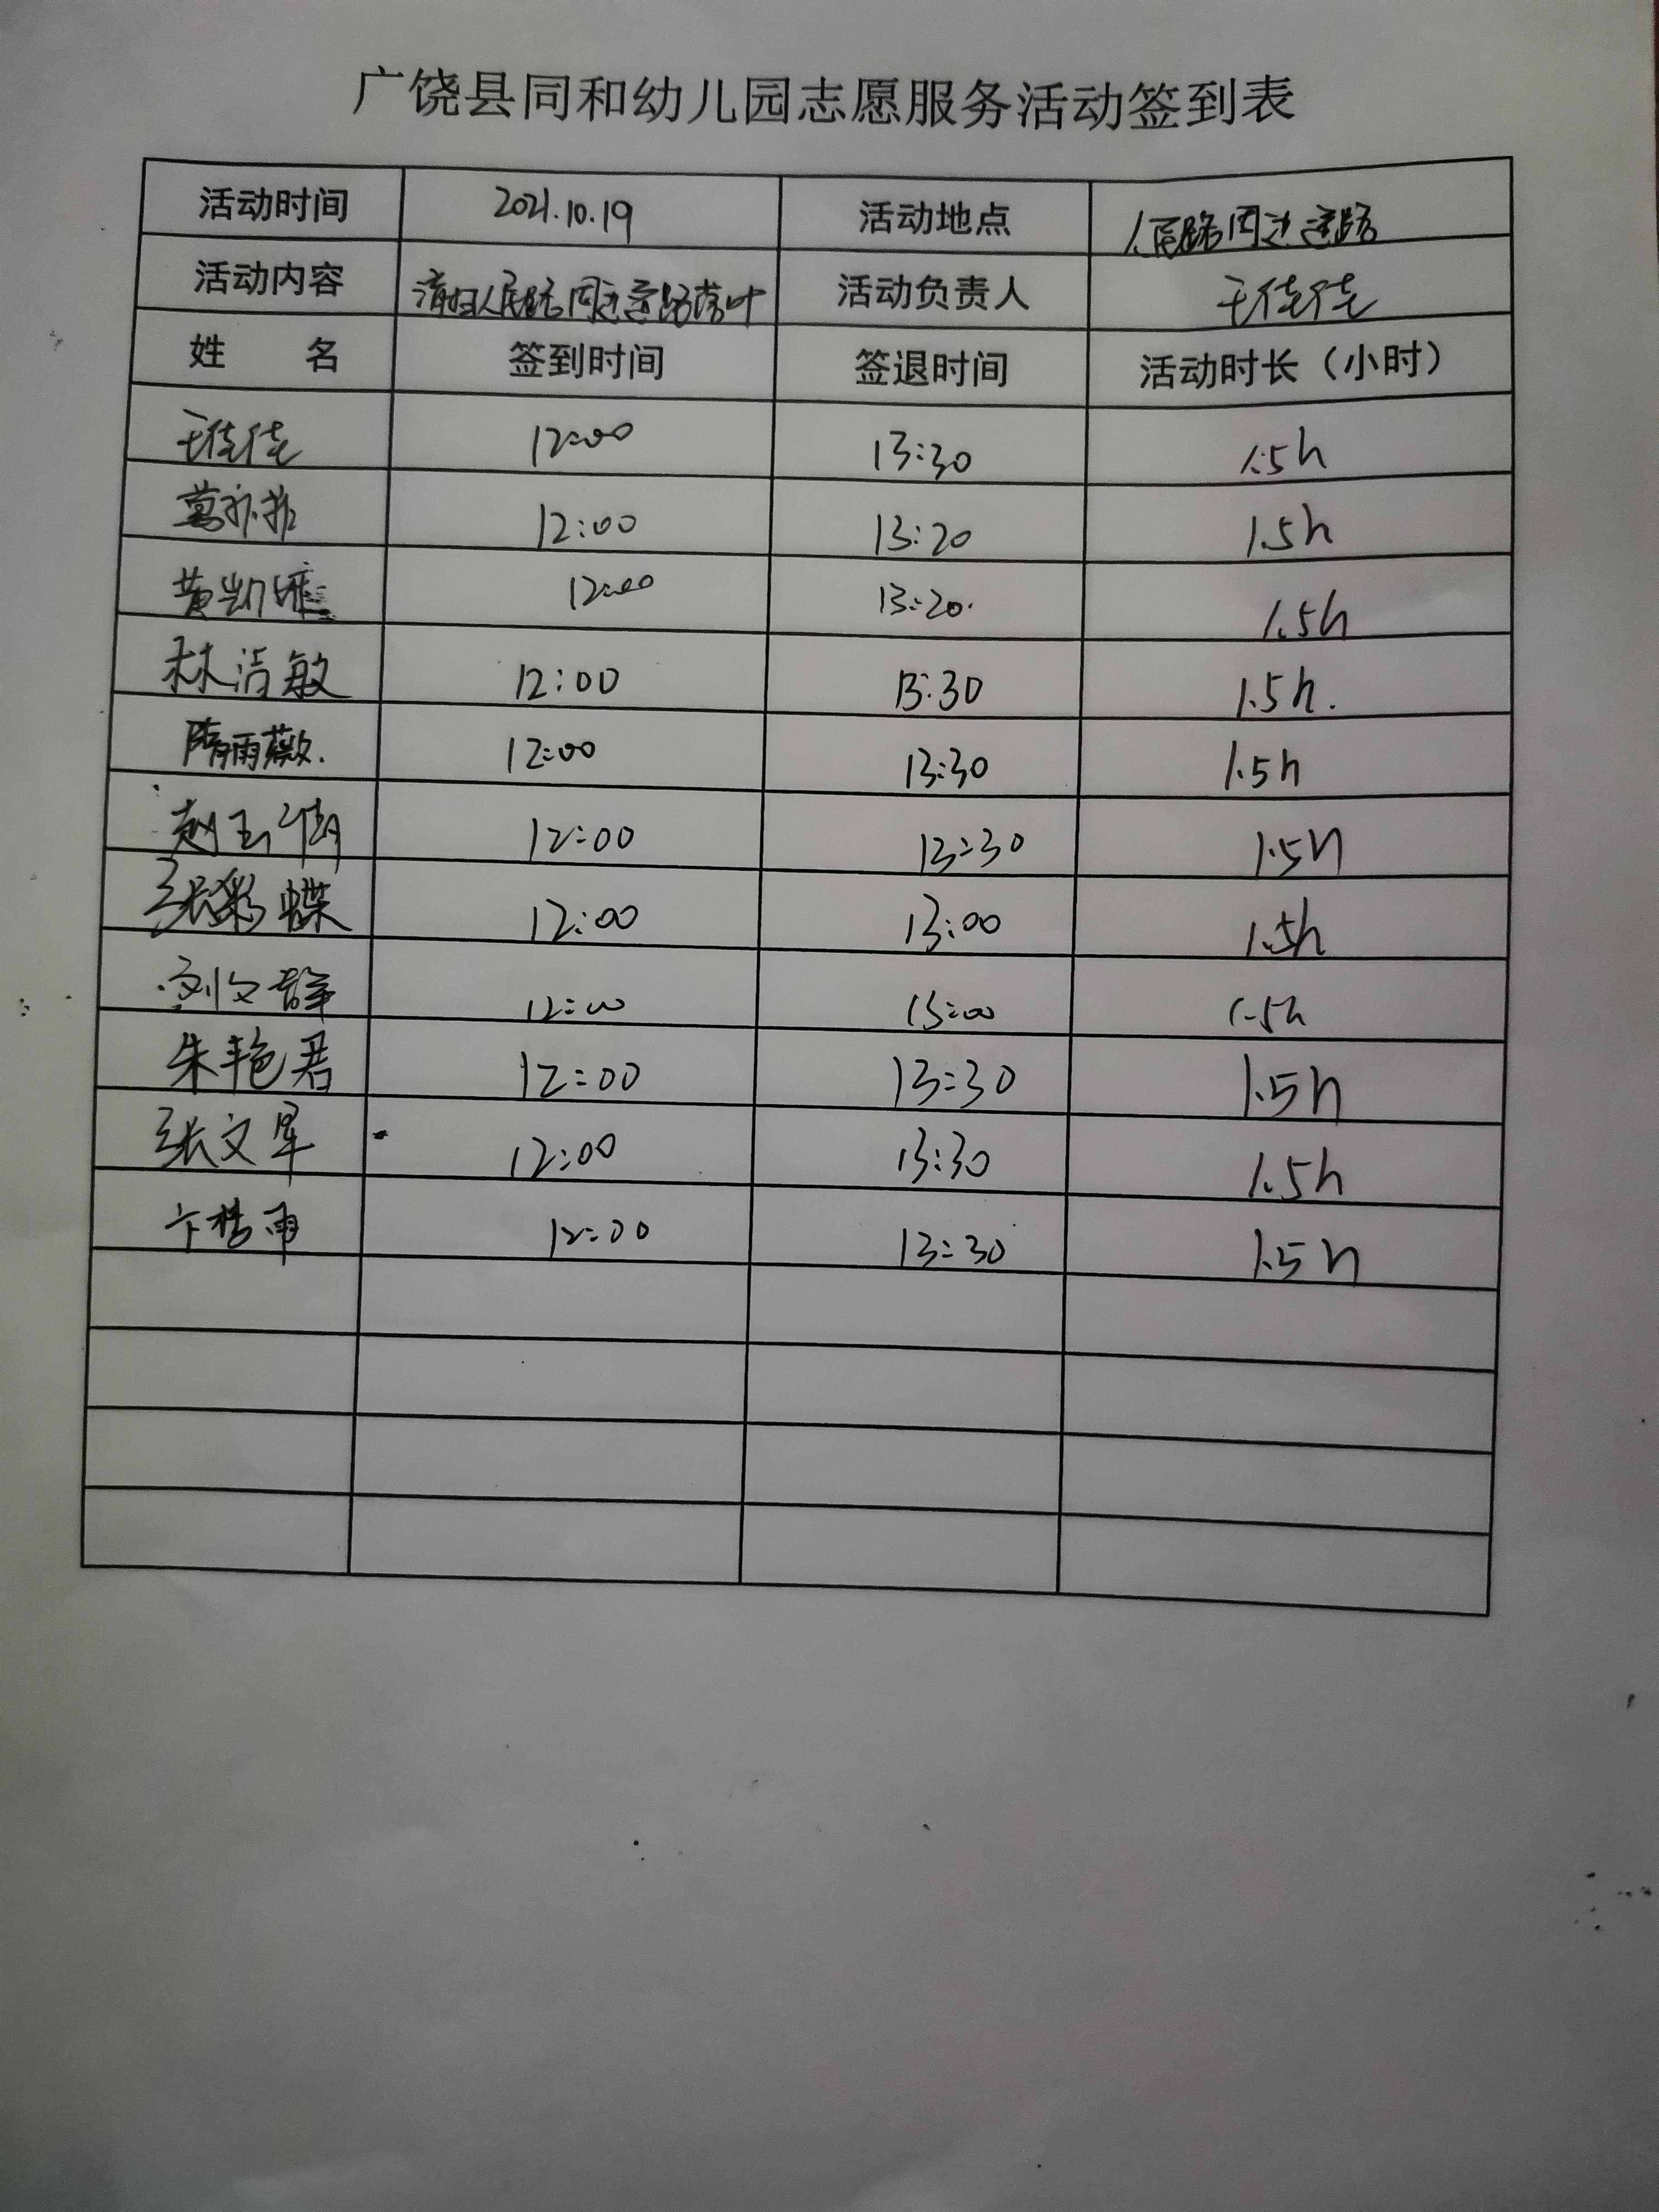 广饶县同和幼儿园志愿服务活动签到表
活动时间 2021.10.19 活动地点 人民路周边道路
活动内容 清扫人民路周边道路落叶 活动负责人 王佳佳
姓 名 签到时间 签退时间 活动时长（小时）
王佳佳 12:00 13:30 1.5h
12:00 13:20 1.5h
黄凯 12:00 13:20. 1.5h
林洁敏 12:00 13:30 1.5h.
隋雨薇. 12:00 13:30 1.5h
赵玉倩 12:00 13:30 1.5h
张彩蝶 12:00 13:00 1.5h
刘文 12:00 13:00 1.5h
朱艳君 12:00 13:30 1.5h
张文 12:00 13:30 1.5h
卞梦雨 12:00 13:30 1.5h